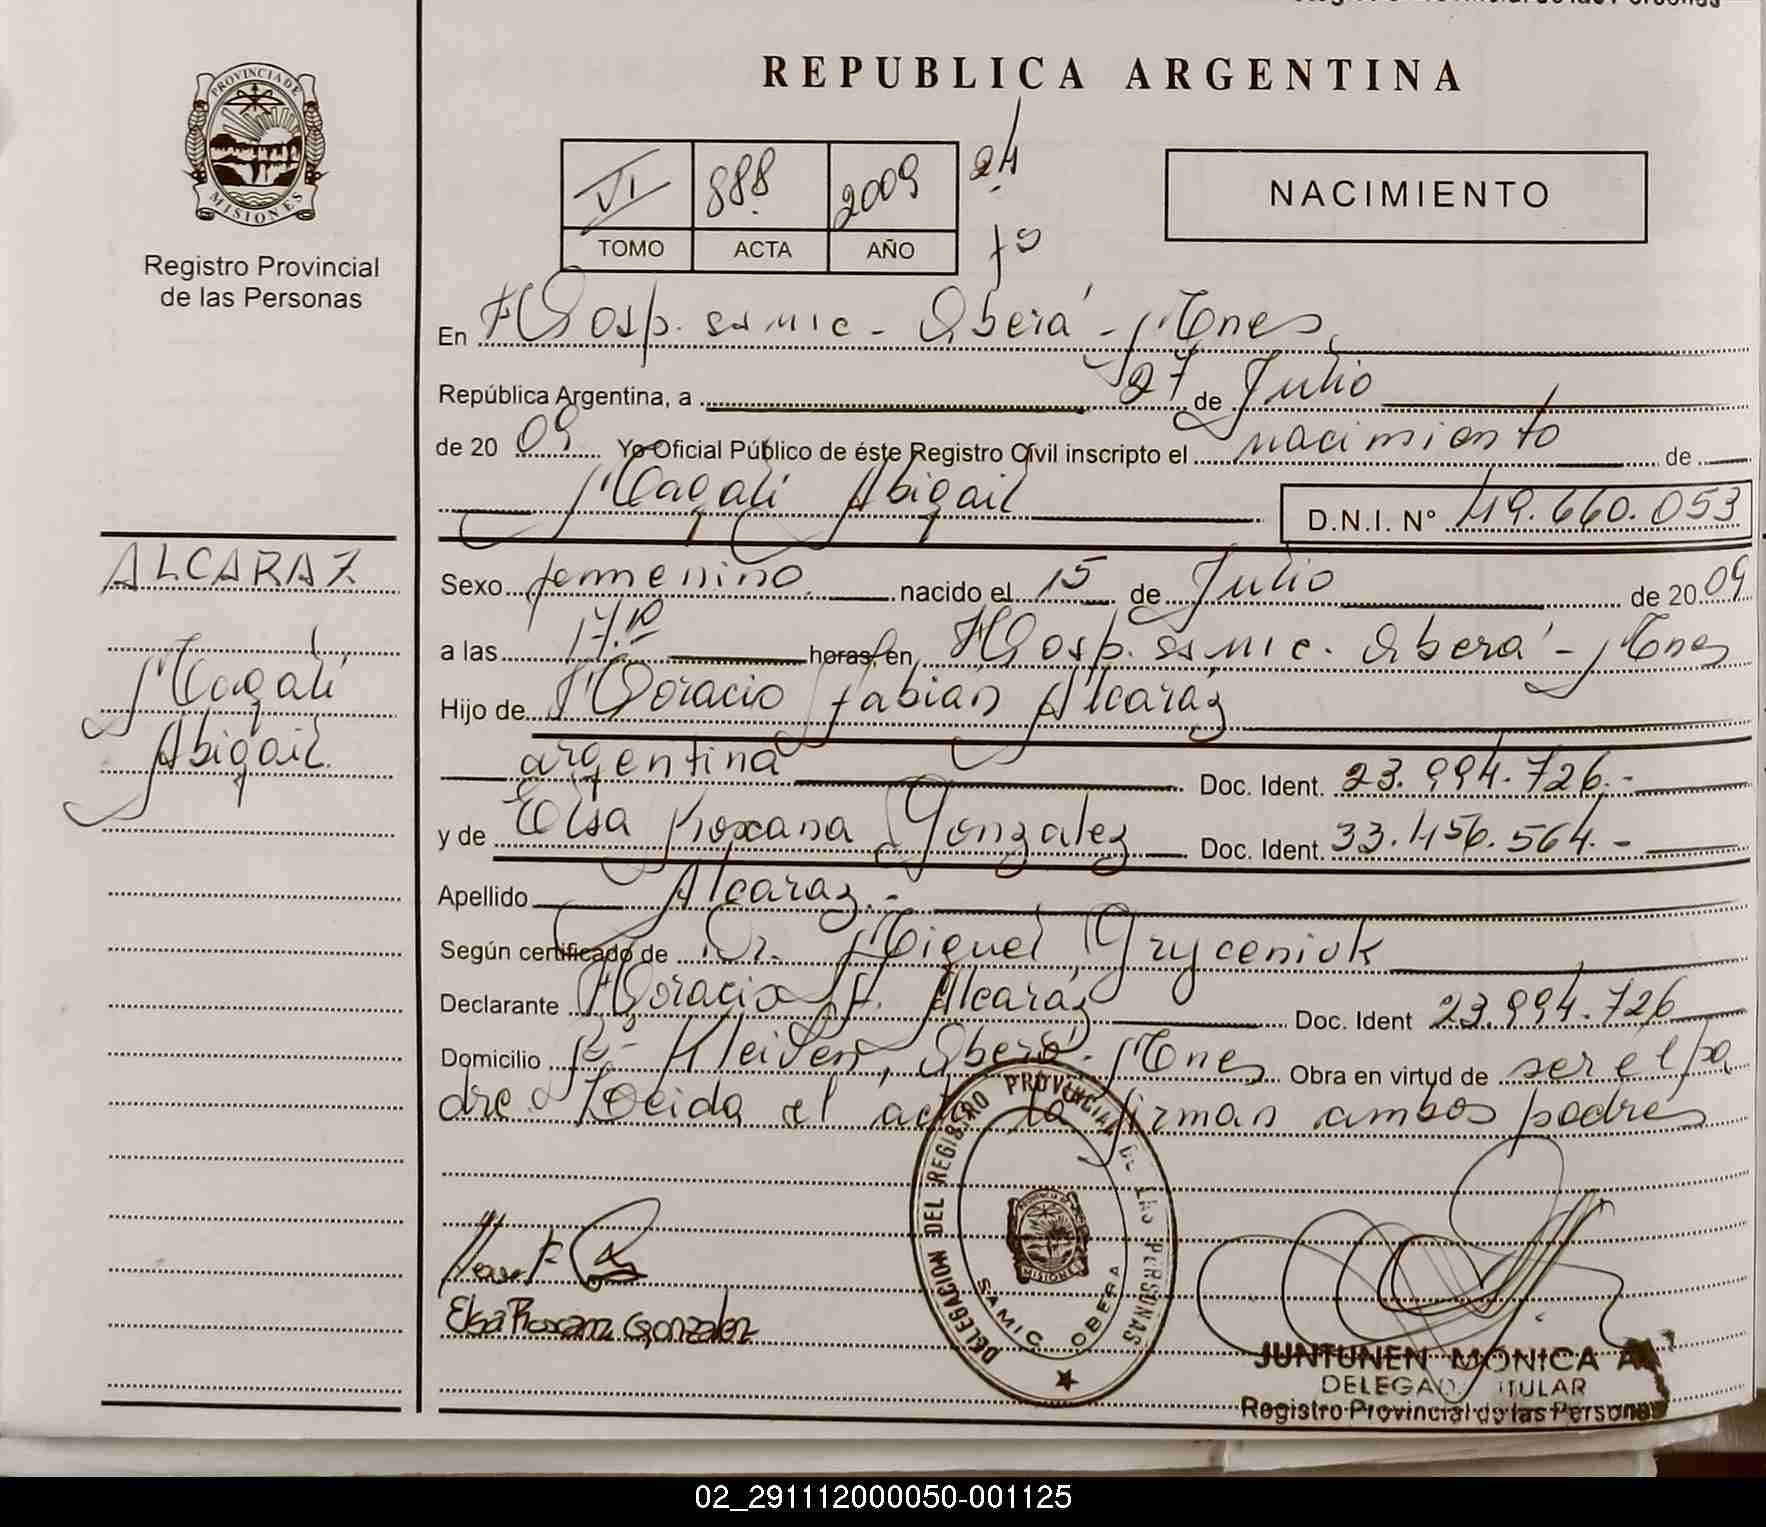 REPUBLICA ARGENTINA
PROVINCIA DE MISIONES
Registro Provincial
de las Personas
VI 888 2009 24
TOMO ACTA AÑO
NACIMIENTO
En Hosp. samic - Oberá - Mnes
República Argentina, a 27 de Julio
de 20 09 Yo Oficial Público de éste Registro Civil inscripto el nacimiento de
Magali Abigail D.N.I. Nº 49.660.053
ALCARAZ
Magali
Abigail
Sexo femenino nacido el 15 de Julio de 20 09
a las 17.10 horas, en Hosp. samic. Oberá - Mnes
Hijo de Horacio Fabián Alcaráz
argentina Doc. Ident. 23.994.726.-
y de Elsa Roxana Gonzalez Doc. Ident. 33.456.564.-
Apellido Alcaraz.-
Según certificado de Dr. Miguel Gryceniuk
Declarante Horacio F. Alcaráz Doc. Ident 23.994.726
Domicilio Oberá - Mnes Obra en virtud de ser el pa
dre Leida el acta firman ambos padres
Elsa Roxana Gonzalez
DELEGACION DEL REGISTRO PROVINCIAL DE LAS PERSONAS
MISIONES
SAMIC OBERA
JUNTUNEN MONICA A
DELEGADA TITULAR
Registro Provincial de las Personas
02_291112000050-001125